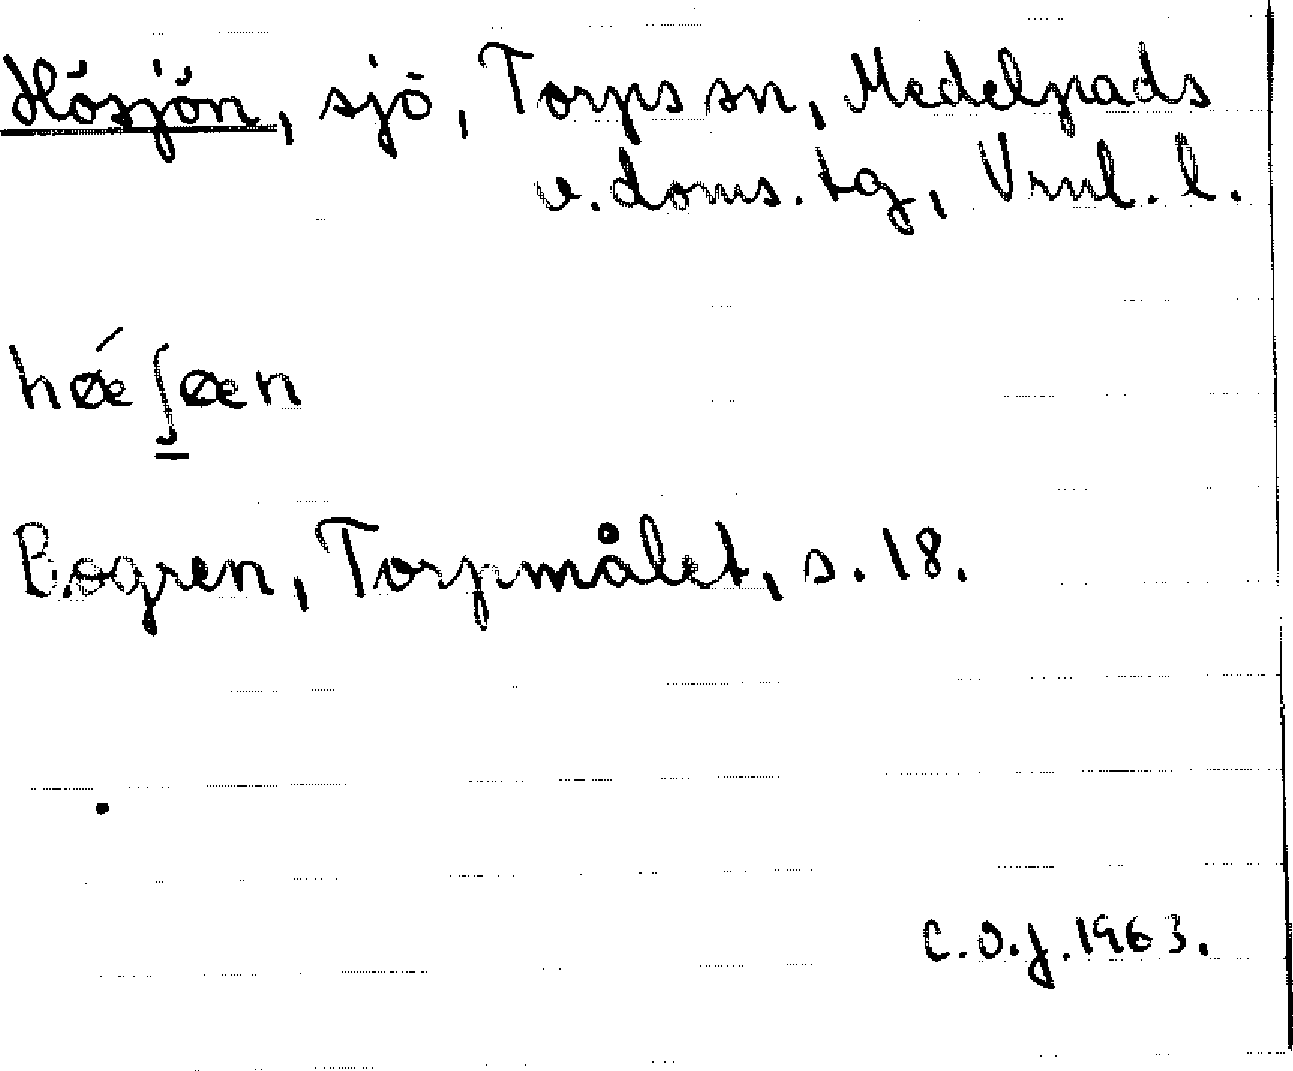 Hösjön, sjö, Torps sn, Medelpads
v. doms. tg, Vrnl. l.
hǿeʃøen
Bogren, Torpmålet, s. 18.
C.O.J. 1963.